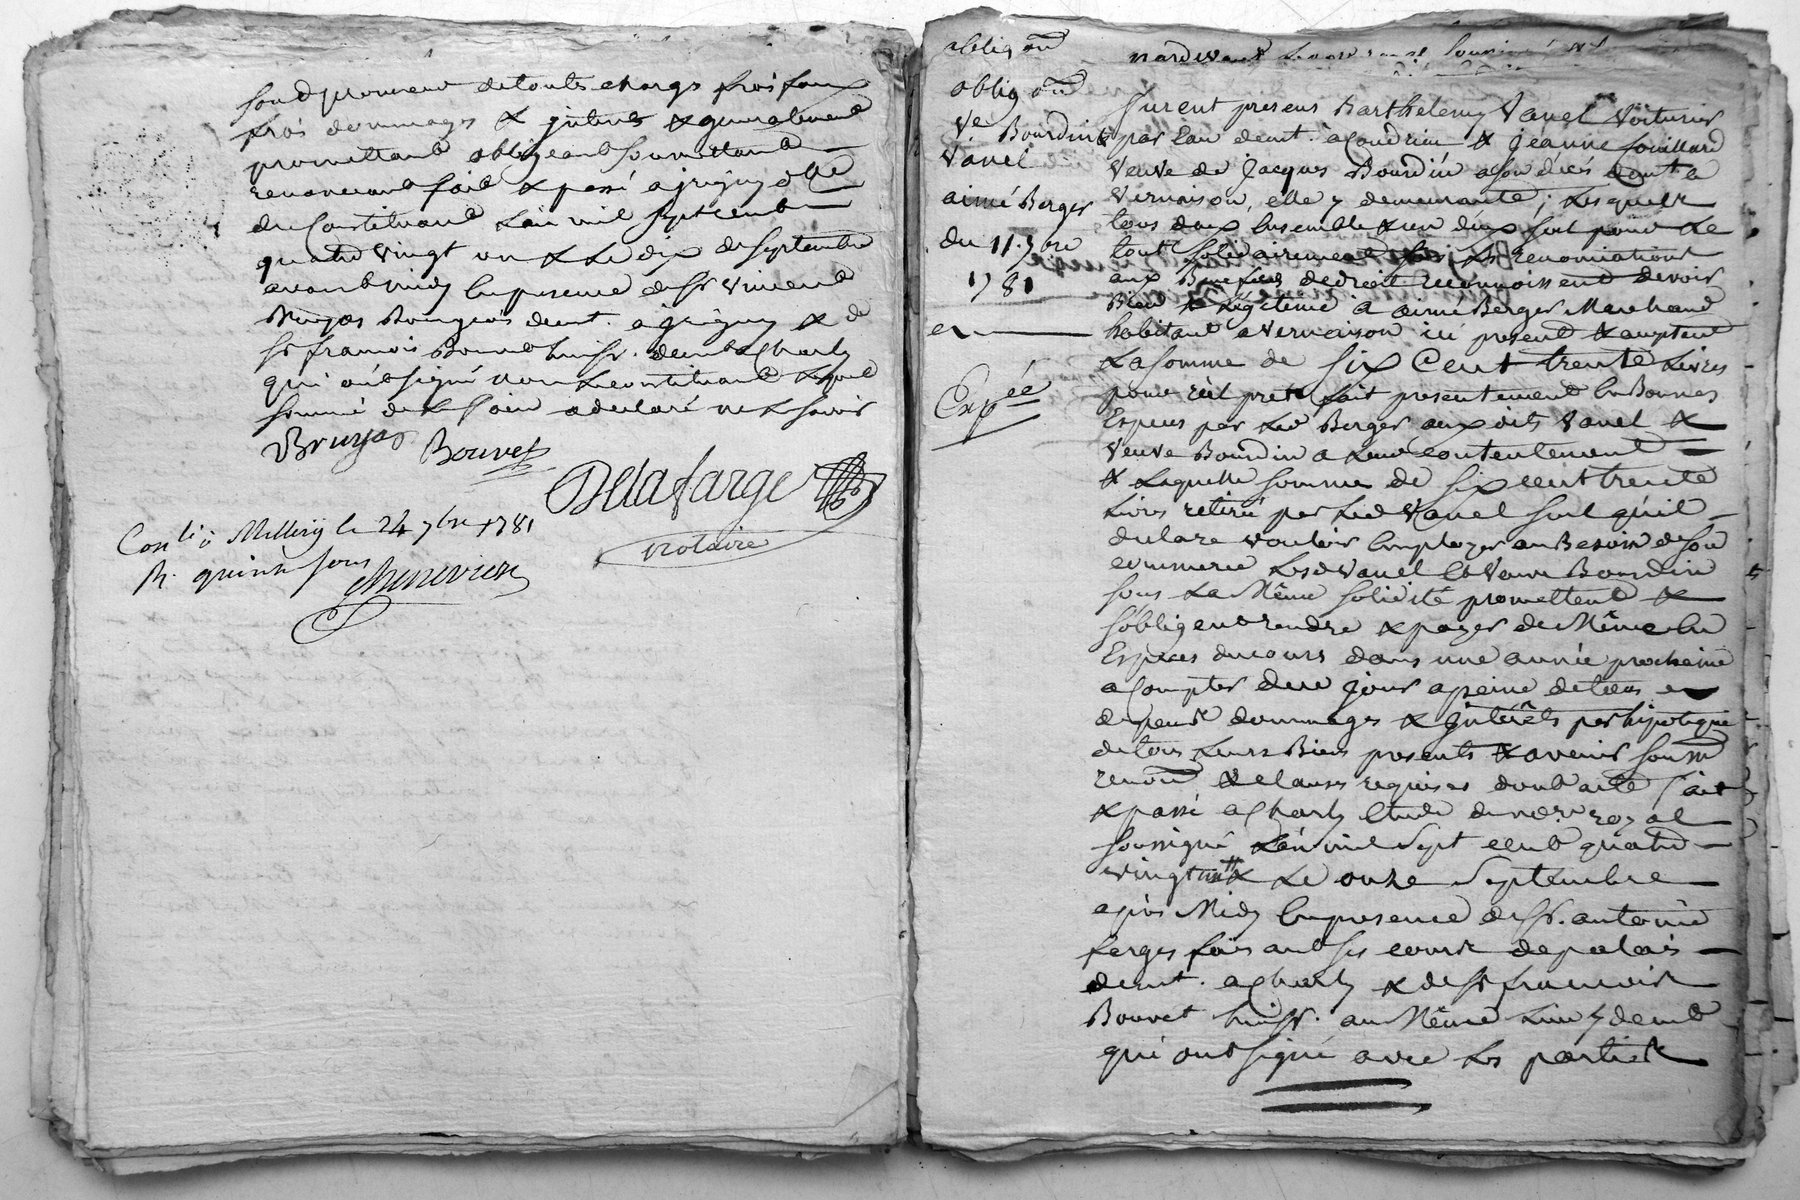 de touts charges frois
frois dommages & jnterets & generalement
promettant obligeant soumettant
renoncant fait & passé a grigny
du Constituant L'an mil sept cent
quatre vingt un & Le dix de septembre
avant midy En presence de Sr vincent
Bruyas Bourgeois demt. a grigny & de
Sr francois Bouvet huissr. demt a Charly
qui ont signé non Le constituant Lequel
sommé de Le faire a declaré ne Le scavoir
Bruyas Bouvet
Delafarge
notaire
à Millery le 24 7bre 1781
R. quinze sous
obligon
par devant Le nore royal soussigné
obligon
ve Bourdin &
vanel
aimé Berger
du 11. 7bre
1781
Expée
furent presens Barthelemy Vanel Voiturier
par Eau demt. a Condrieu & Jeanne
Veuve de Jacques Bourdin a son decés demt a
Vernaison, elle y demeurante, Lesquels
tous deux Ensemble & un d'eux seul pour Le
tout solidairement Les renonciations
aux Benefices de droit reconnoissent devoir
Bien & Legitime a aimé Berger Marchand
habitant a Vernaison ici present & acceptant
La somme de six Cent trente Livres
pour reel prêt fait presentement En Bonnes
Especes par Led Berger auxdits Vanel &
Veuve Bourdin a Leur contentement
& Laquelle somme de six cent trente
Livres retiré par Led Vanel seul qu'il
declare vouloir Employer au Besoin de son
commerce Lesd Vanel Et Veuve Bourdin
sous La Même solidité promettent &
s'obligent rendre & payer de Même En
Especes du cours dans une année prochaine
a Compter de ce Jour a peine de tous
depens dommages & Jntérêts par hipoteque
de tous Leurs Biens presents & avenir soumon
renon & clauses requises dont acte fait
& passé a Charly Etude du nore royal
soussigné L'an mil sept cent quatre
vingt un & Le onze Septembre
après Midy En presence de Sr. antoine
farges faisant ses cours de palais
demt. a Charly & de Sr francois
Bouvet huissr. au Même Lieu y demt
qui ont signé avec Les parties